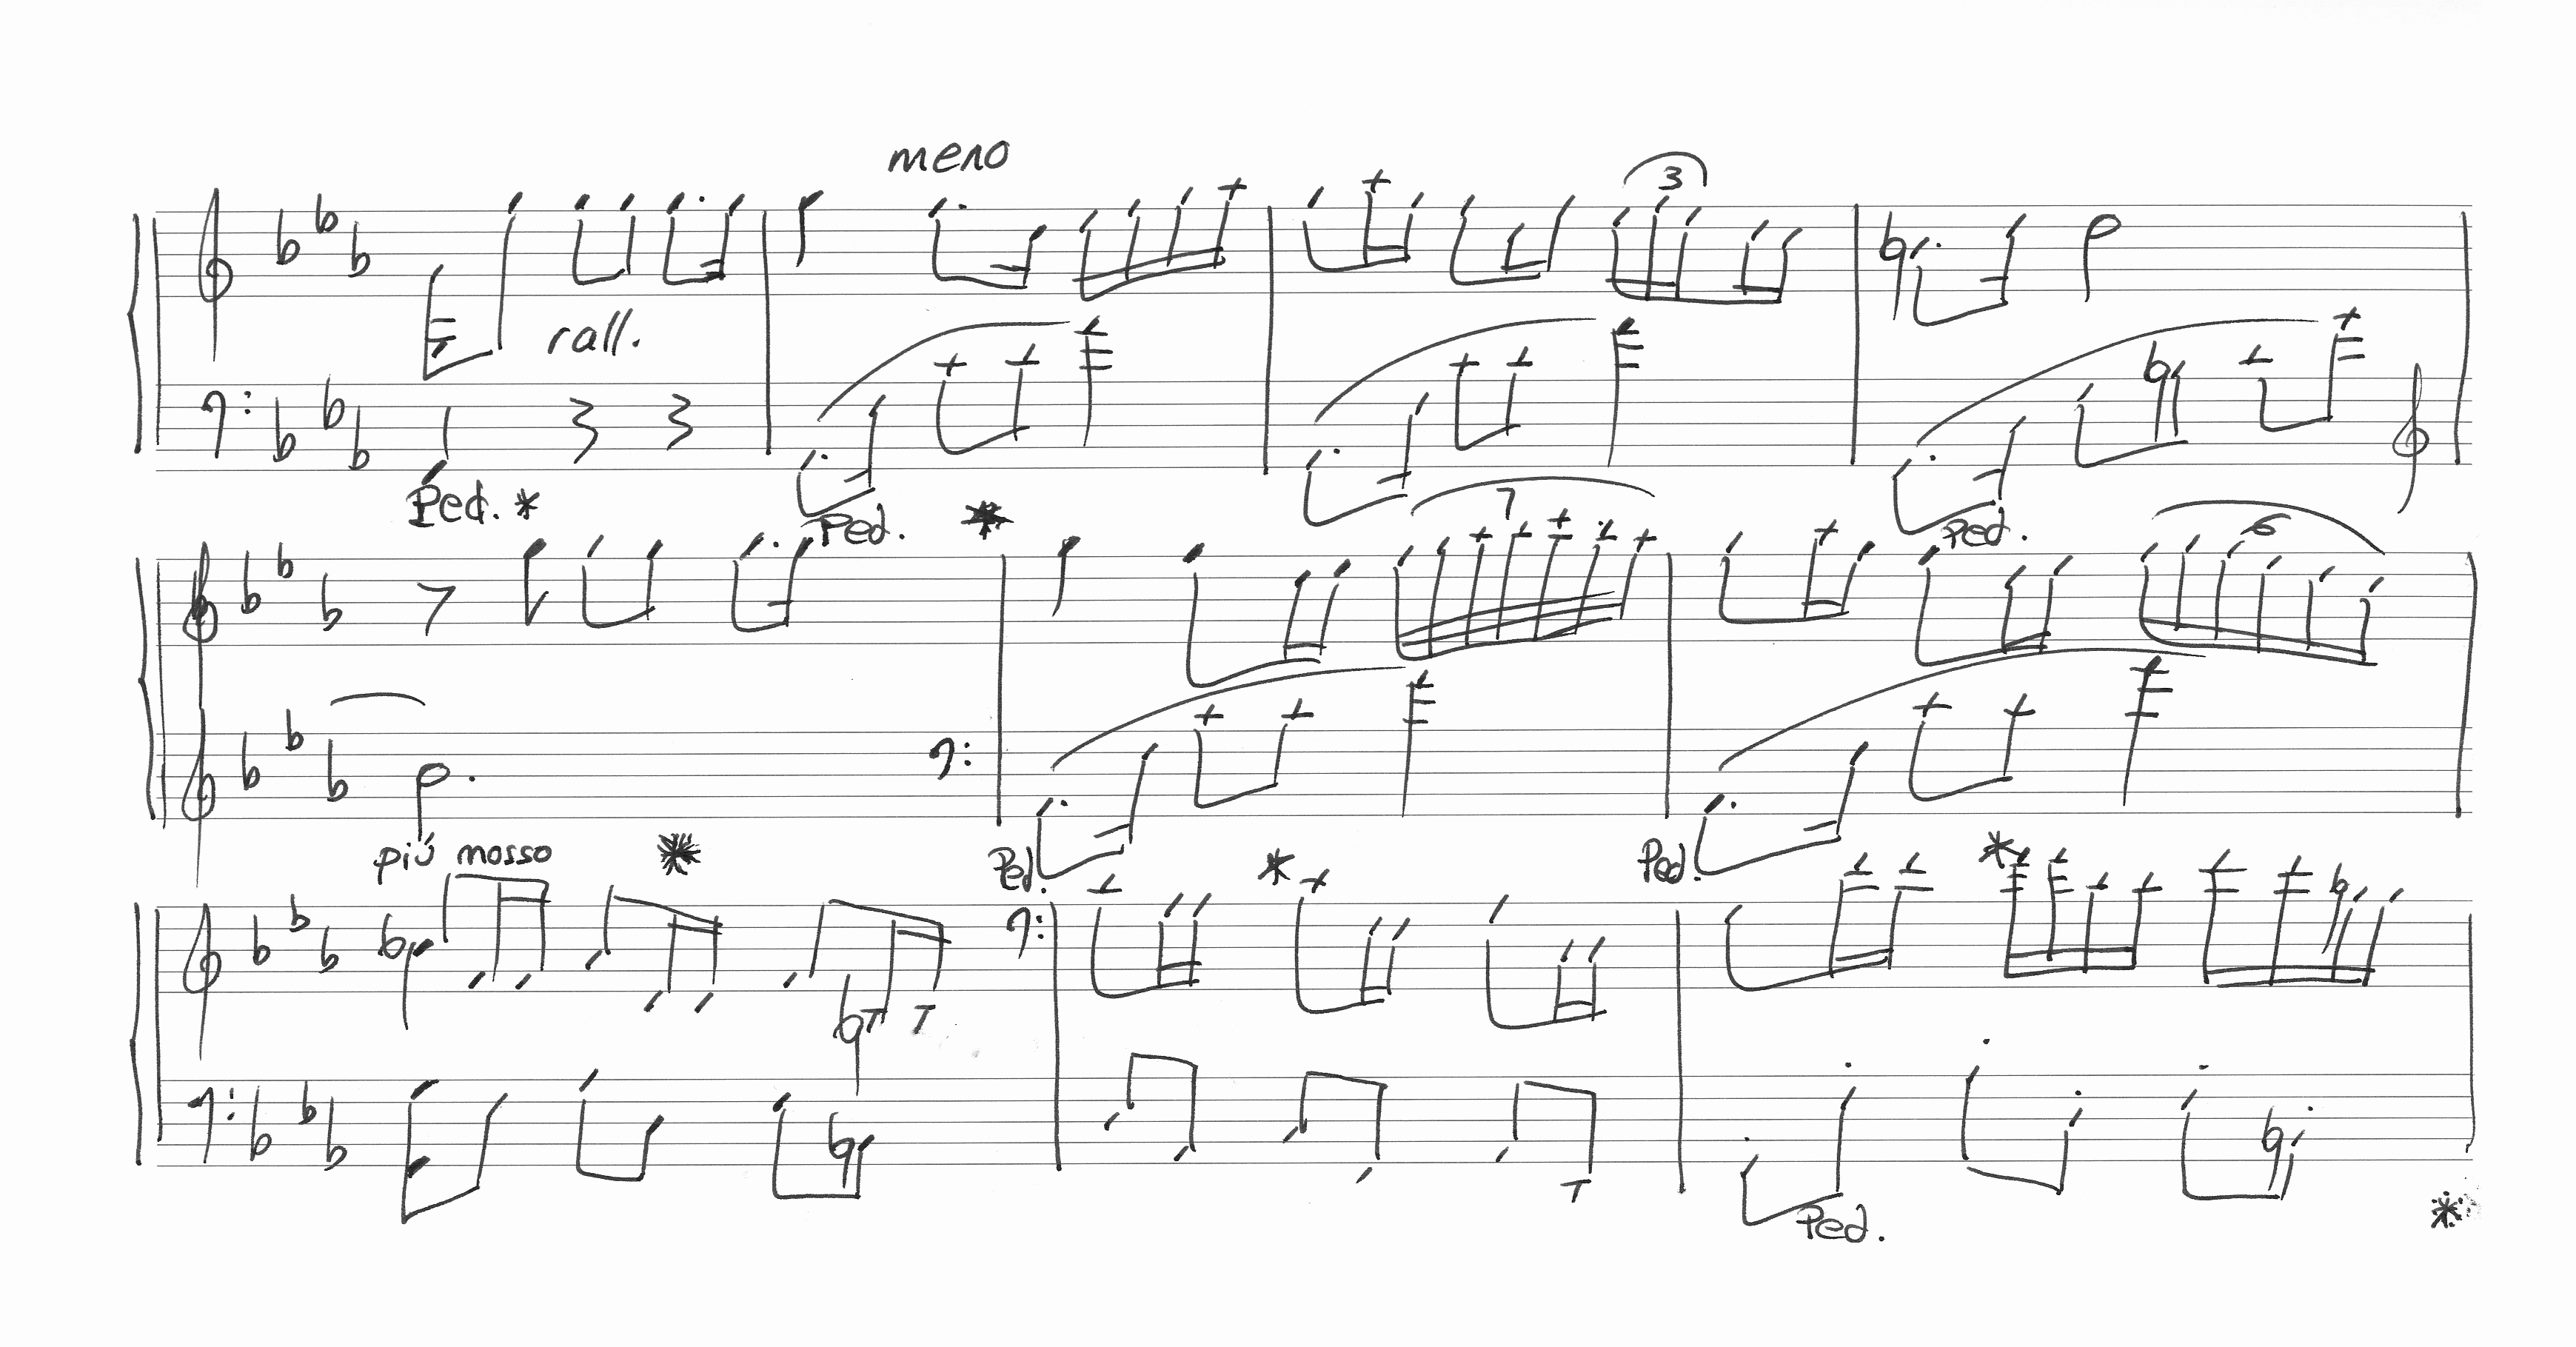 meno
3
rall.
Ped. * Ped. * Ped.
7 6
più mosso * Ped. * Ped. *
Ped. *